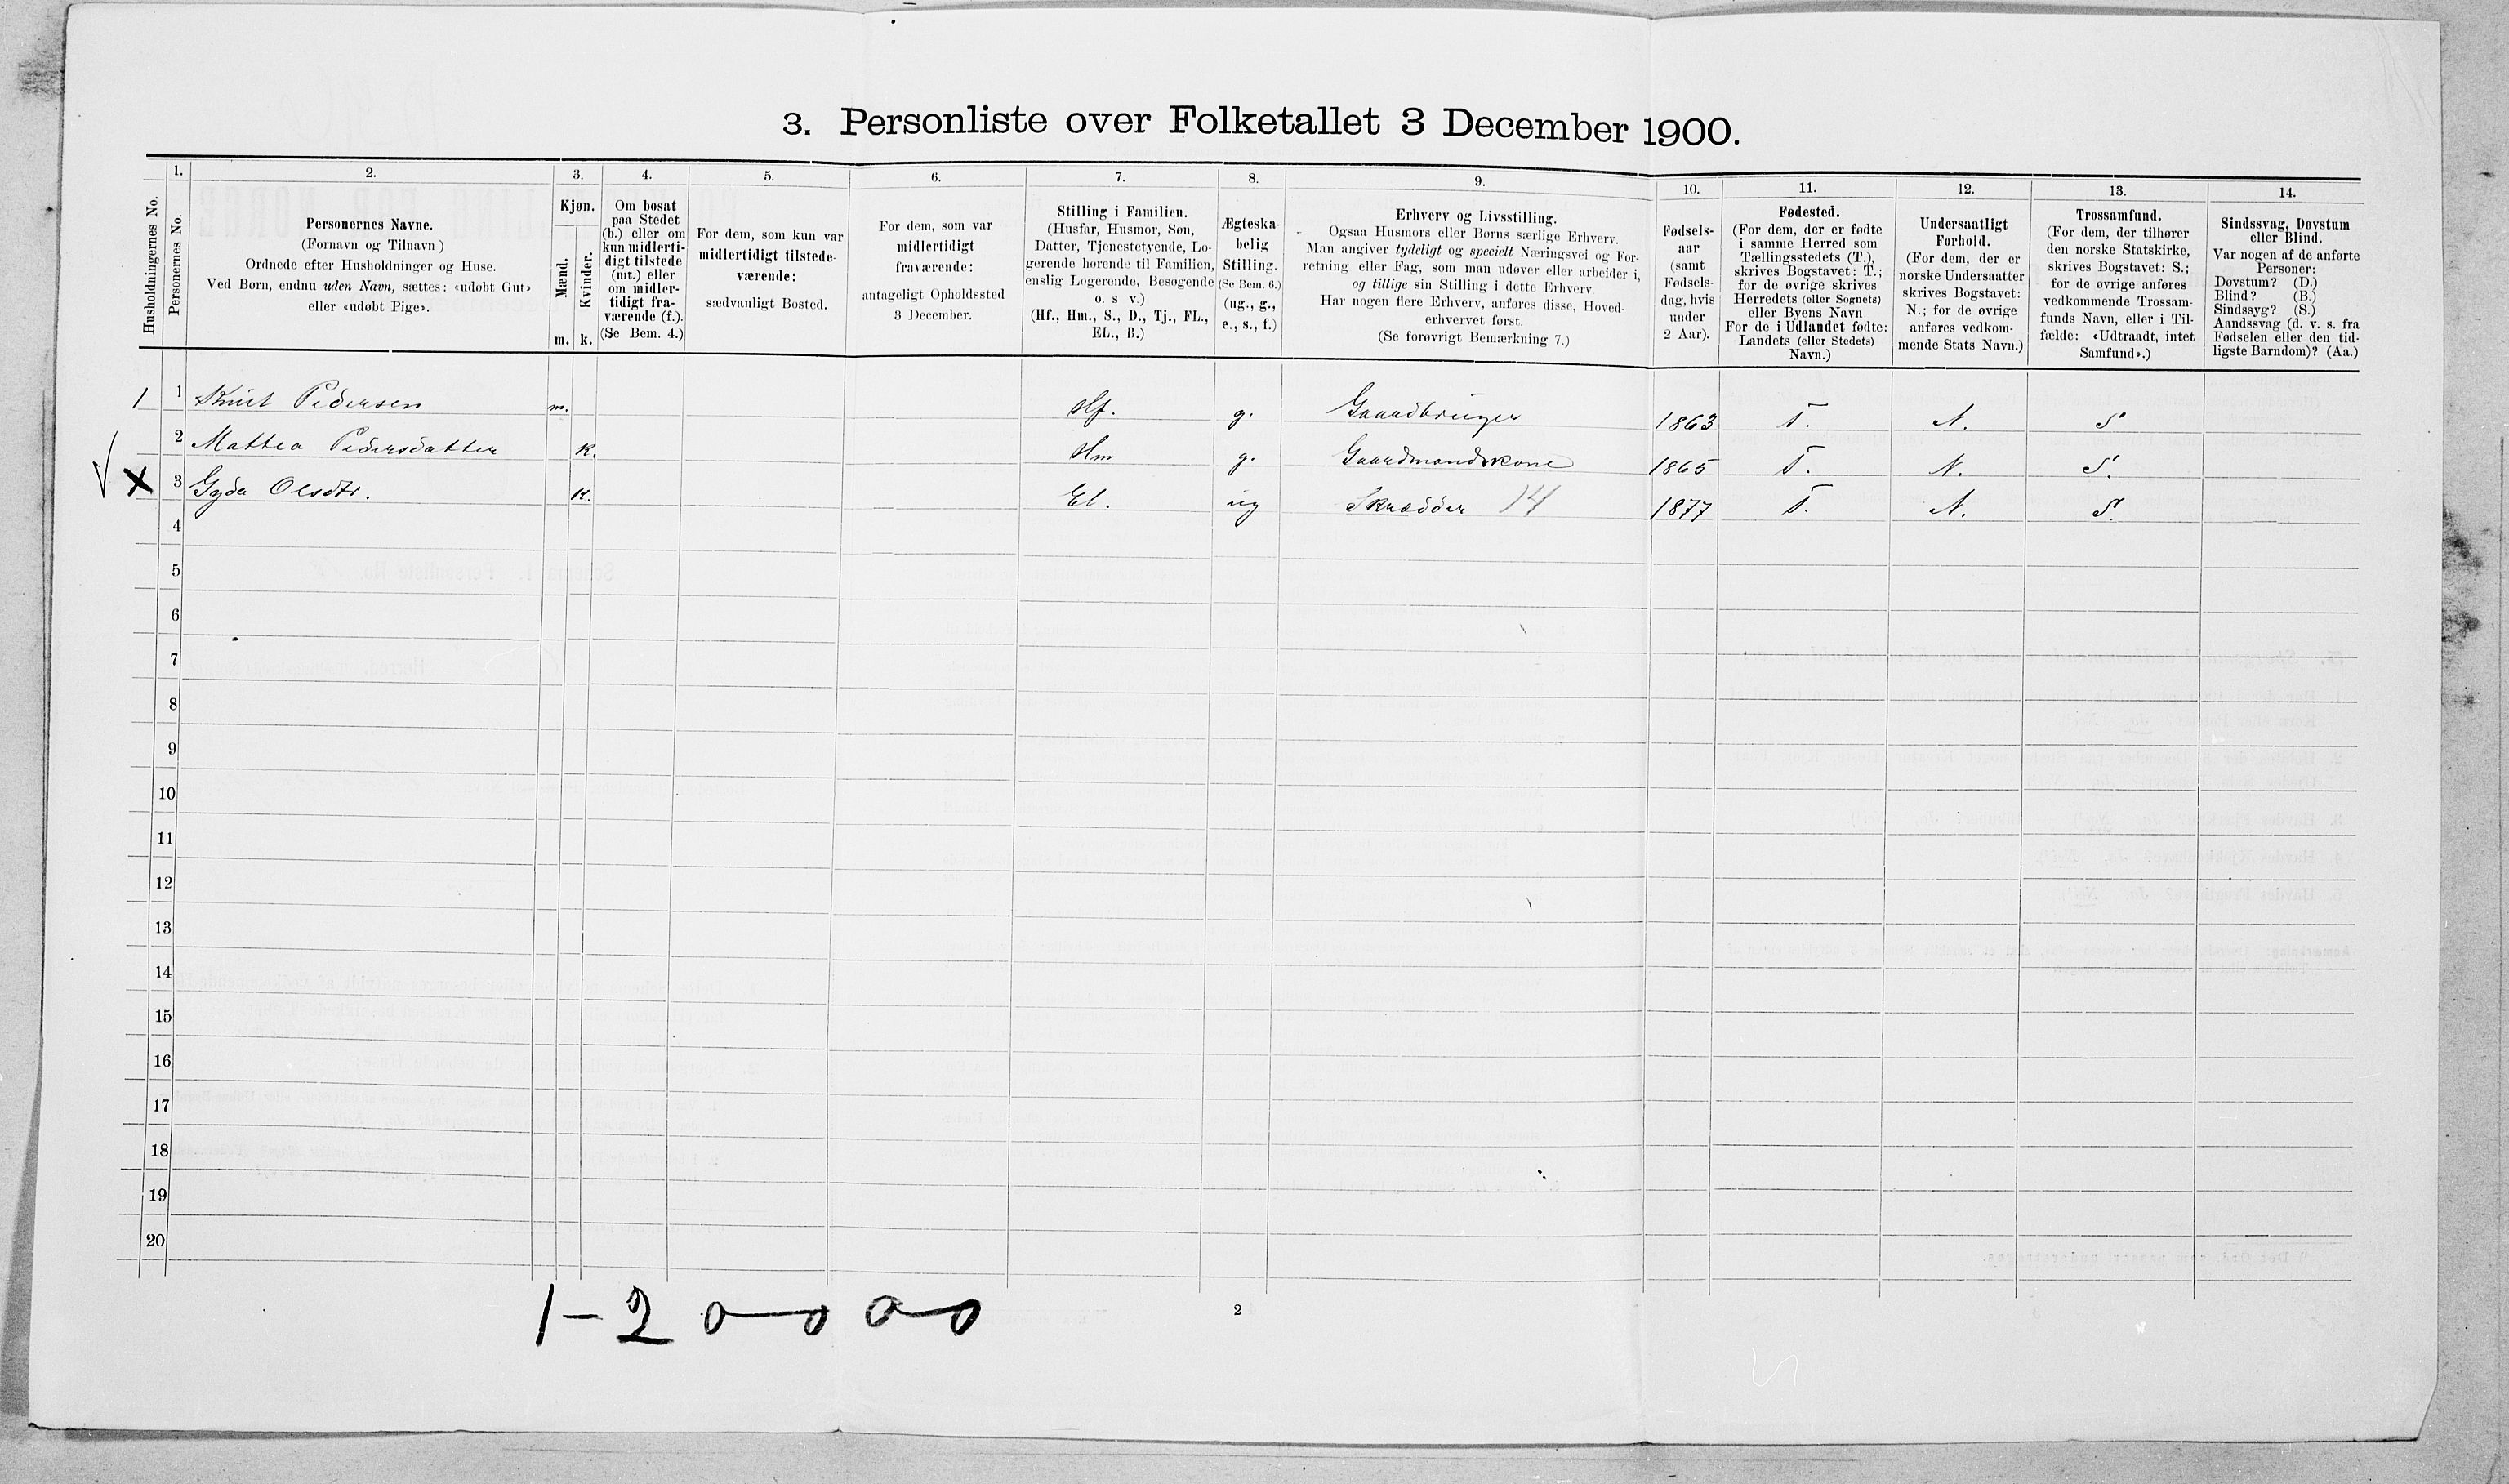 3. Personliste over Folketallet 3 December 1900.
Husholdningernes No.
1.
Personernes No.
2.
Personernes Navne.
(Fornavn og Tilnavn)
Ordnede efter Husholdninger og Huse.
Ved Børn, endnu uden Navn, sættes: «udøbt Gut»
eller «udøbt Pige».
3.
Kjøn.
Mænd.
Kvinder.
m. k.
4.
Om bosat
paa Stedet
(b.) eller om
kun midlerti-
digt tilstede
(mt.) eller
om midler-
tidigt fra-
værende (f.).
(Se Bem. 4.)
5.
For dem, som kun var
midlertidigt tilstede-
værende:
sædvanligt Bosted.
6.
For dem, som var
midlertidigt
fraværende:
antageligt Opholdssted
3 December.
7.
Stilling i Familien.
(Husfar, Husmor, Søn,
Datter, Tjenestetyende, Lo-
gerende hørende til Familien,
enslig Logerende, Besøgende
o. s v.)
(Hf., Hm., S., D., Tj., FL.,
EL., B.)
8.
Ægteska-
belig
Stilling.
(Se Bem. 6.)
(ug., g.,
e., s., f.)
9.
Erhverv og Livsstilling.
Ogsaa Husmors eller Børns særlige Erhverv.
Man angiver tydeligt og specielt Næringsvei og For-
retning eller Fag, som man udøver eller arbeider i,
og tillige sin Stilling i dette Erhverv
Har nogen flere Erhverv, anføres disse, Hoved-
erhvervet først.
(Se forøvrigt Bemærkning 7.)
10.
Fødsels-
aar
(samt
Fødsels-
dag, hvis
under
2 Aar).
11.
Fødested.
(For dem, der er fødte
i samme Herred som
Tællingsstedets (T.),
skrives Bogstavet: T.;
for de øvrige skrives
Herredets (eller Sognets)
eller Byens Navn
For de i Udlandet fødte:
Landets (eller Stedets)
Navn.)
12.
Undersaatligt
Forhold.
(For dem, der er
norske Undersaatter
skrives Bogstavet:
N.; for de øvrige
anføres vedkom-
mende Stats Navn.)
13.
Trossamfund.
(For dem, der tilhører
den norske Statskirke,
skrives Bogstavet: S.;
for de øvrige anføres
vedkommende Trossam-
funds Navn, eller i Til-
fælde: «Udtraadt, intet
Samfund».)
14.
Sindssvag, Døvstum
eller Blind.
Var nogen af de anførte
Personer:
Døvstum? (D.)
Blind? (B.)
Sindssyg? (S.)
Aandssvag (d. v. s. fra
Fødselen eller den tid-
ligste Barndom)? (Aa.)
1 1 Knut Pedersen m. Hf. g. Gaardbruger 1863 T. N. S
2 Mathea Pedersdatter k. Hm g. Gaardmandskone 1865 T. N. S.
X 3 Gyda Olsdtr. k. El. ug Skrædder 14 1877 T. N. S.
4
5
6
7
8
9
10
11
12
13
14
15
16
17
18
19
20
1 - 2 0 - 0 0 - 0
2